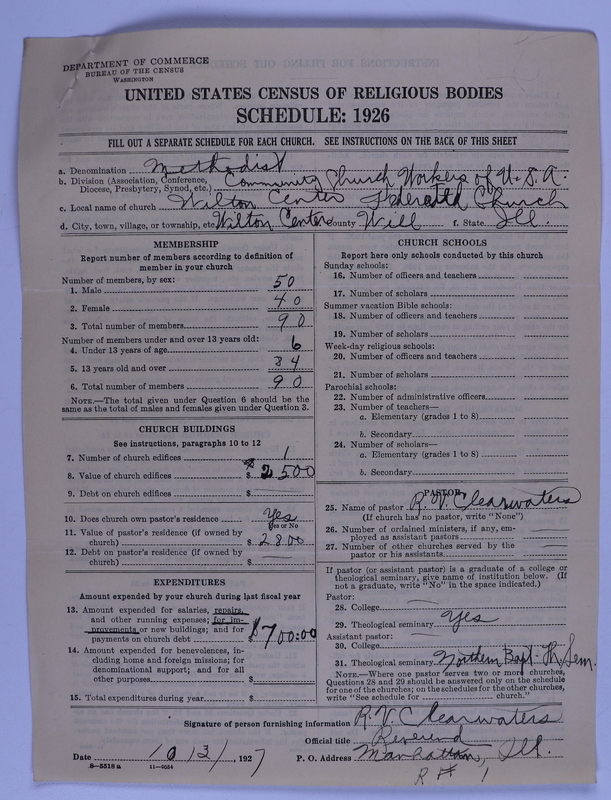 DEPARTMENT OF COMMERCE
BUREAU OF THE CENSUS
WASHINGTON
UNITED STATES CENSUS OF RELIGIOUS BODIES
SCHEDULE: 1926
FILL OUT A SEPARATE SCHEDULE FOR EACH CHURCH. SEE INSTRUCTIONS ON THE BACK OF THIS SHEET
a. Denomination Methodist
b. Division (Association, Conference, Diocese, Presbytery, Synod, etc.) Community Church Workers of U.S.A.
c. Local name of church Wilton Center Federated Church
d. City, town, village, or township, etc. Wilton Center County Will f. State Ill.
MEMBERSHIP
Report number of members according to definition of
member in your church
Number of members, by sex:
1. Male 50
2. Female 40
3. Total number of members 90
Number of members under and over 13 years old:
4. Under 13 years of age 6
5. 13 years old and over 84
6. Total number of members 90
NOTE.—The total given under Question 6 should be the
same as the total of males and females given under Question 3.
CHURCH BUILDINGS
See instructions, paragraphs 10 to 12
7. Number of church edifices 1
8. Value of church edifices $ 2500
9. Debt on church edifices $
10. Does church own pastor's residence Yes
Yes or No
11. Value of pastor's residence (if owned by
church) $ 2800
12. Debt on pastor's residence (if owned by
church) $
EXPENDITURES
Amount expended by your church during last fiscal year
13. Amount expended for salaries, repairs,
and other running expenses; for im-
provements or new buildings; and for
payments on church debt $700:00
14. Amount expended for benevolences, in-
cluding home and foreign missions; for
denominational support; and for all
other purposes $
15. Total expenditures during year $
CHURCH SCHOOLS
Report here only schools conducted by this church
Sunday schools:
16. Number of officers and teachers
17. Number of scholars
Summer vacation Bible schools:
18. Number of officers and teachers
19. Number of scholars
Week-day religious schools:
20. Number of officers and teachers
21. Number of scholars
Parochial schools:
22. Number of administrative officers
23. Number of teachers—
a. Elementary (grades 1 to 8)
b. Secondary
24. Number of scholars—
a. Elementary (grades 1 to 8)
b. Secondary
PASTOR
25. Name of pastor R. V. Clearwaters
(If church has no pastor, write "None")
26. Number of ordained ministers, if any, em-
ployed as assistant pastors
27. Number of other churches served by the
pastor or his assistants
If pastor (or assistant pastor) is a graduate of a college or
theological seminary, give name of institution below. (If
not a graduate, write "No" in the space indicated.)
Pastor:
28. College
29. Theological seminary Yes
Assistant pastor:
30. College
31. Theological seminary Northern Bapt. Th. Sem.
NOTE.—Where one pastor serves two or more churches,
Questions 28 and 29 should be answered only on the schedule
for one of the churches; on the schedules for the other churches,
write "See schedule for church."
Signature of person furnishing information R. V. Clearwaters
Official title Reverend
Date 10/31, 1927 P. O. Address Manhattan, Ill.
8-5518a 11-9554 R# 1